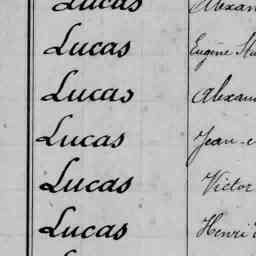 Lucas Alexan
Lucas Eugène
Lucas Alexan
Lucas Jean-
Lucas Victor
Lucas Henri